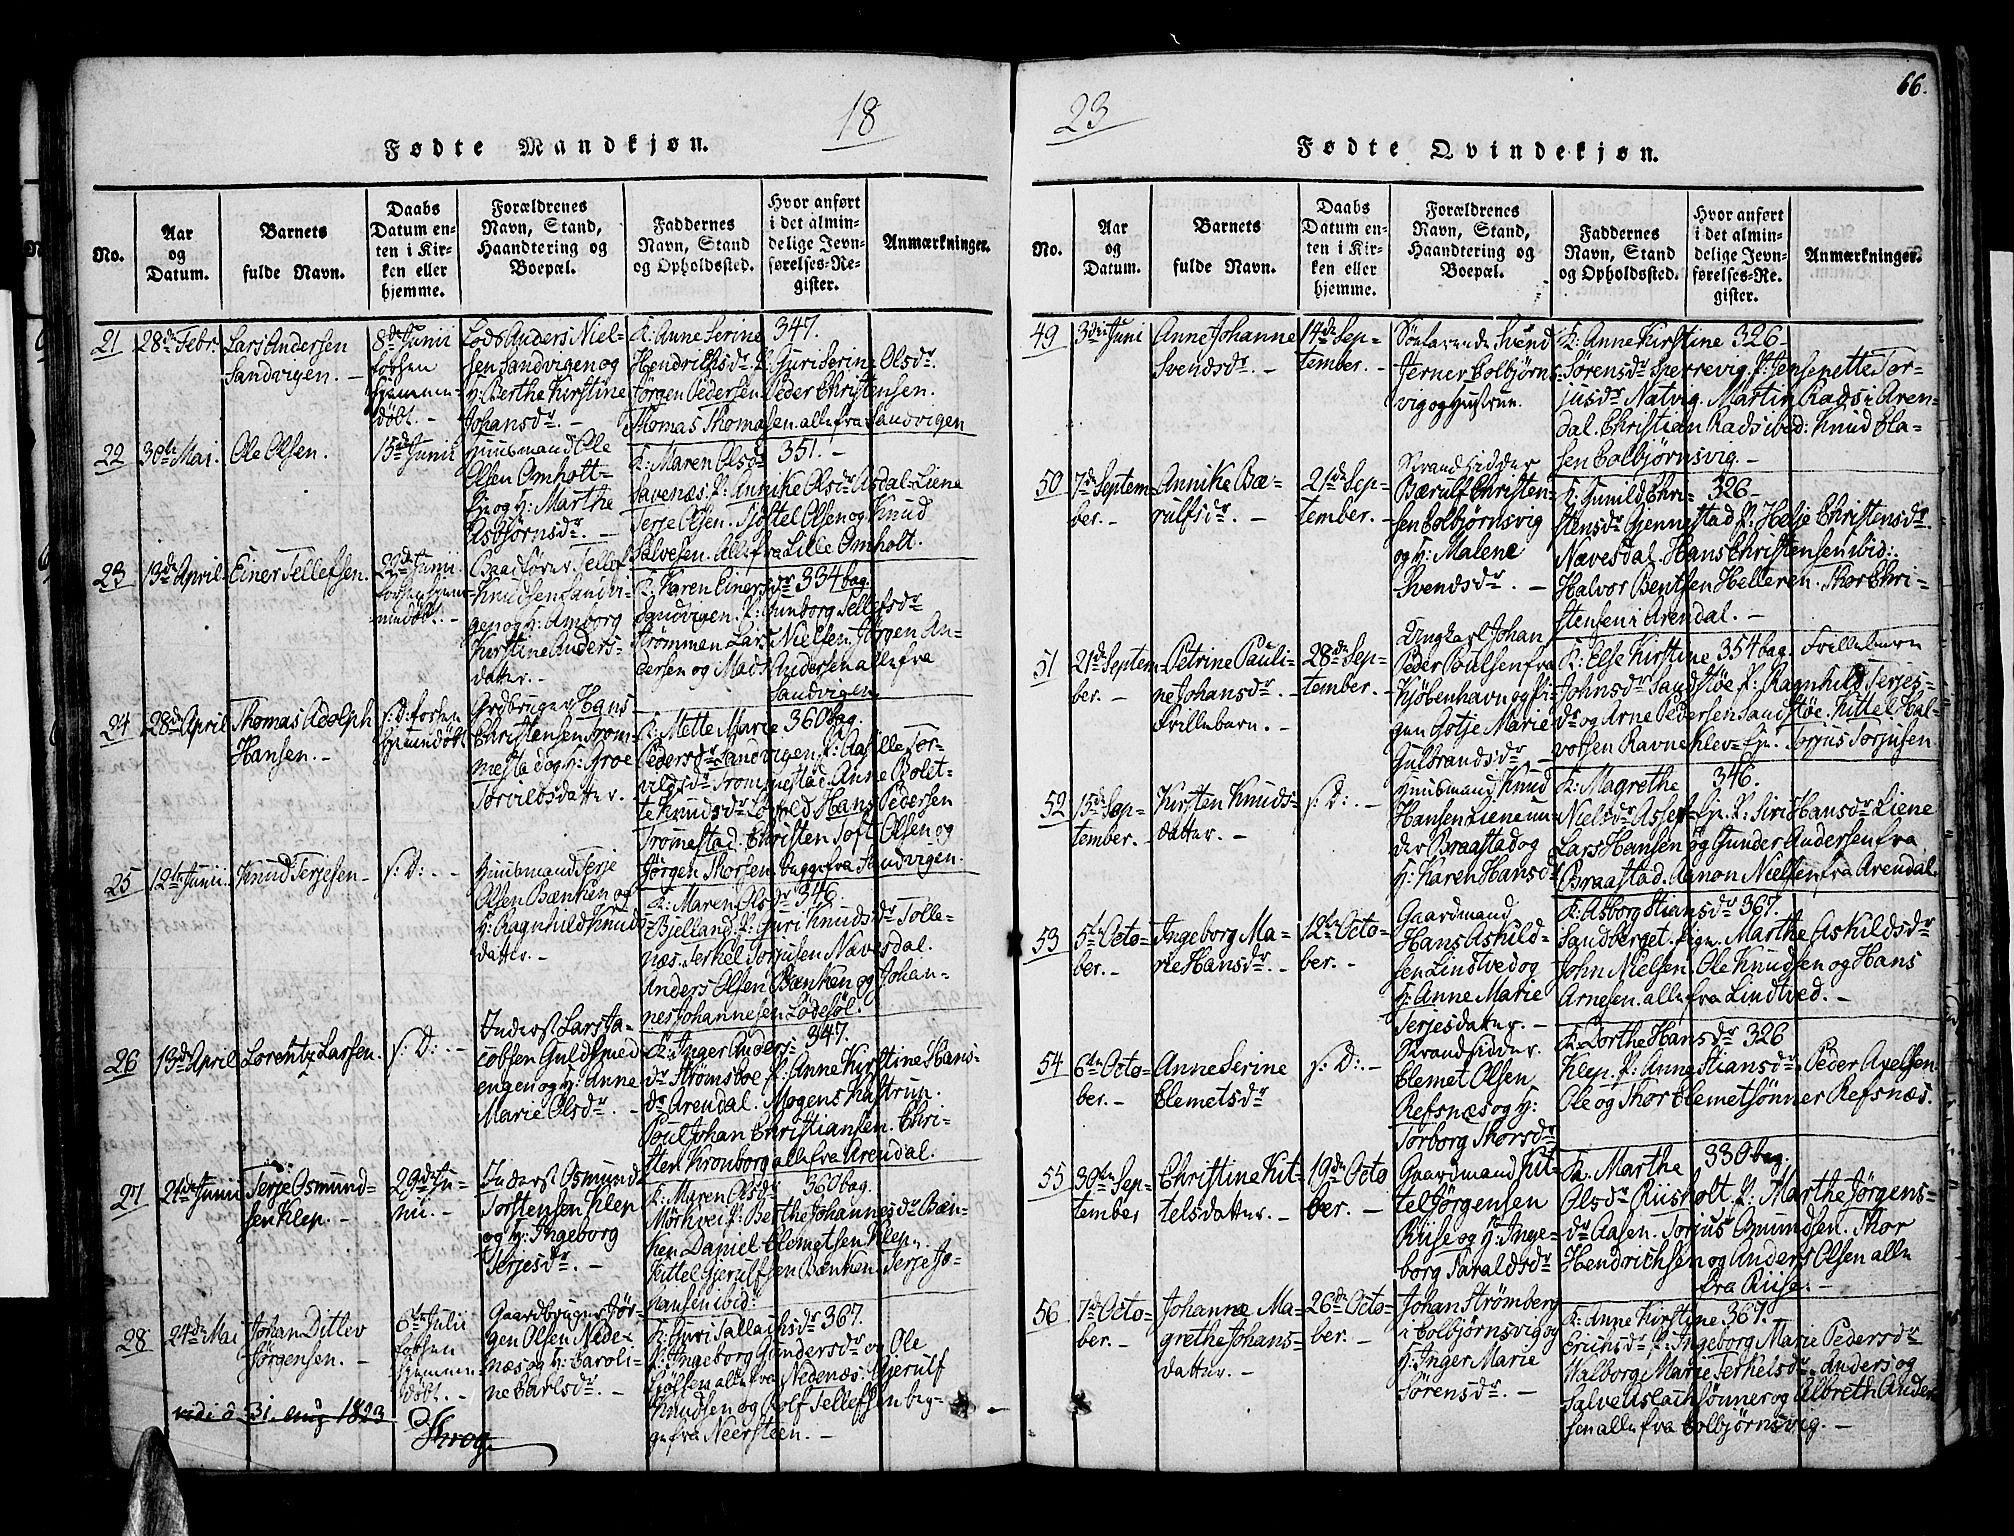 18
Fødte Mandkjøn.
No.
Aar og Datum.
Barnets fulde Navn.
Daabs Datum enten i Kirken eller hjemme.
Forældrenes Navn, Stand, Haandtering og Boepæl.
Faddernes Navn, Stand og Opholdssted.
Hvor anført i det almindelige Jevnførelses-Register.
Anmærkninger.
21
28de Febr.
Lars Andersen
Sandvigen. –
8de Junii
forhen
hjemmedøbt. –
Lods Anders Nielsen
Sandvigen og
H: Berthe Kirstine
Johansdr. –
K: Anne Serine 347.
Hendrichsdr. P: Guri Serine Olsdr.
Jørgen Pedersen Peder Christensen.
Thomas Thomasen. alle fra Sandvigen
22
30de Mai.
Ole Olsen.
15de Junii
Huusmand Ole
Olsen Omholt-
Eje og H: Marthe
Asbjørnsdr. –
K: Maren Olsdr 351. –
Savenæs. P: Annike Olsdr Asdal-Liene
Terje Olsen. Kjøstel Olsen og Knud
Salvesen. Alle fra Lille Omholt.
23
13de April
Einer Tellefsen.
22de Junii
forhen hjemmedøbt. –
Baadfører Tellef
Knudsen Sandvigen
og H: Amborg
Kirstine Andersdatter. –
K: Karen Einersdr 334 bag.
Sandvigen. P: Gunborg Tellefsdr
Strømmen Lars Nielsen. Jørgen Andersen
og Mads Andersen alle fra
Sandvigen
24
28de April
Thomas Adolph
Hansen. –
s: D: forhen
hjemmedøbt
Jordbruger Hans
Christensen Trommestad
og H: Groe
Torvildsdatter.
K: Mette Marie 360 bag.
Pedersdr Sandvigen. P: Aasille Torvildsdr
Trommestad. Anne Bolette
Knudsdr Løfold Hans Pedersen
Tromestad. Christen Toft Olsen og
Jørgen Thorsen begge fra Sandvigen.
25
12te Junii.
Knud Terjesen.
s: D: –
Huusmand Terje
Olsen Bænken og
H: Ragnhild Knudsdatter. –
K: Maren Olsdr 346 –
Bjelland. P: Guri Knudsdr Tollenæs.
Terkel Torjusen Næversdal.
Anders Olsen Bænken og Johannes
Johannesen Lødesøl.
26
13de April
Lorentz Larsen.
s: D: –
Inderst Lars Jacobsen
Guldsmedengen
og H: Anne
Marie Olsdr. –
K: Inger Anders- 347.
dr Strømsboe P: Anne Kirstine Hansdr
Arendal. Mogens Kastrup.
Poul Johan Christiansen. Christen
Kronborg alle fra Arendal.
27
21de Junii
Terje Osmundsen
Klep. –
29de Junii. –
Inderst Osmund
Torstensen Klep
og H: Ingeborg
Terjesdr. –
K: Maren Olsdr 360 bag.
Mørkvei P: Berthe Johannesdr Bænken
Daniel Clemetsen Klep.
Kittel Gjerulfsen Bænken. Terje Johansen
ibid:
28
24de Mai
Johan Ditlev
Jørgensen. –
6te Julii
forhen
hjemmedøbt. –
Gaardbruger Jørgen
Olsen Nedenæs
og H: Caroline
Carlsdr. –
K: Guri Tallachsdr 367.
P: Ingeborg Gundersdr og Ole
alle fra Nedenæs. Gjerulf
Knudsen og Rolf Tellefsen begge
fra Neersteen. –
vidi d 31. Aug 1823
23
66.
Fødte Qvindekjøn.
No.
Aar og Datum.
Barnets fulde Navn.
Daabs Datum enten i Kirken eller hjemme.
Forældrenes Navn, Stand, Haandtering og Boepæl.
Faddernes Navn, Stand og Opholdssted.
Hvor anført i det almindelige Jevnførelses-Register.
Anmærkninger.
49
3die Juni
Anne Johanne
Svendsdr. –
14de September. –
Søefarende Svend
Jerner Colbjørnsvig
og Hustrue.
K: Anne Kirstine 326 –
Sørensdr Sperrevig. P: Jensenette Torjusdr
Natvig. Martin Rads i Arendal.
Christian Rads ibid: Knud Clasen
Colbjørnsvig. –
50
7de September. –
Annike Bærulfsdr. –
21de September. –
Strandsidder
Bærulf Christensen
Colbjørnsvig
og H: Malene
Svendsdr. –
K: Gunild Chri- 326 –
stensdr Gjennestad. P: Helje Christensdr.
Nævesdal. Hans Christensen ibid:
Halvor Bentsen Helleren. Thor Christensen
i Arendal. –
51
21de September. –
Petrine Pauline
Johansdr. –
Frillebarn. –
28de September. –
Ungkarl Johan
Peder Poulsen fra
Kjøbenhavn og Pigen
Gotje Marie
Gulbrandsdr –
K: Else Kirstine 354 bag. Frillebarn
Johnsdr Sandstøe. P: Ragnhild Terjesdr
og Arne Pedersen Sandstøe. Kittel Halvorsen
Ravneklev-Eje. Torjus Torjusen
52
15de September. –
Kirsten Knudsdatter. –
s: D: –
Huusmand Knud
Hansen Liene under
Braastad og
H: Karen Hansdr
K: Magrethe 346.
Nielsdr Assef-Eje. P: Siri Hansdr Liene
Lars Hansen og Gunder Andersen fra
Braastad. Aanon Nielsen fra Arendal.
53
5te October. –
Ingeborg Marie
Hansdr. –
12te October. –
Gaardmand
Hans Askildsen
Lindtved og
H: Anne Marie
Terjesdatter. –
K: Asborg Stiansdr 367.
Sandberget. Pigen. Marthe Askildsdr
John Nielsen Ole Knudsen og Hans
Arnesen. alle fra Lindtved. –
54
6te October. –
Anne Serine
Clemetsdr
s: D: –
Strandsidder
Clemet Olsen
Refsnæs og H:
Torborg Thorsdr
K: Dorthe Hansdr 326
Klep. P: Anne Stiansdr. Peder Axelsen
Ole og Thor Clemetsønner Refsnæs.
55
30te September
Christine Kittelsdatter. –
19de October. –
Gaardmand Kittel
Jørgensen
Riise og H: Ingeborg
Taraldsdr
K: Marthe 330 bag.
Olsdr Riisholt. P: Marthe Jørgensdr
Aasen. Torjus Omundsen. Thor
Hendrichsen og Anders Olsen alle
fra Riise. –
56
7de October. –
Johanne Magrethe
Johansdatter. –
26de October. –
Johan Strømberg
i Colbjørnsvig og
H: Inger Marie
Sørensdr. –
K: Anne Kirstine 367.
Erichsdr. P: Ingeborg Marie Pedersdr
Walborg Marie Terkelsdr. Anders og
Salve Isaachsønner og Albreth Andersen
alle fra Colbjørnsvig. –